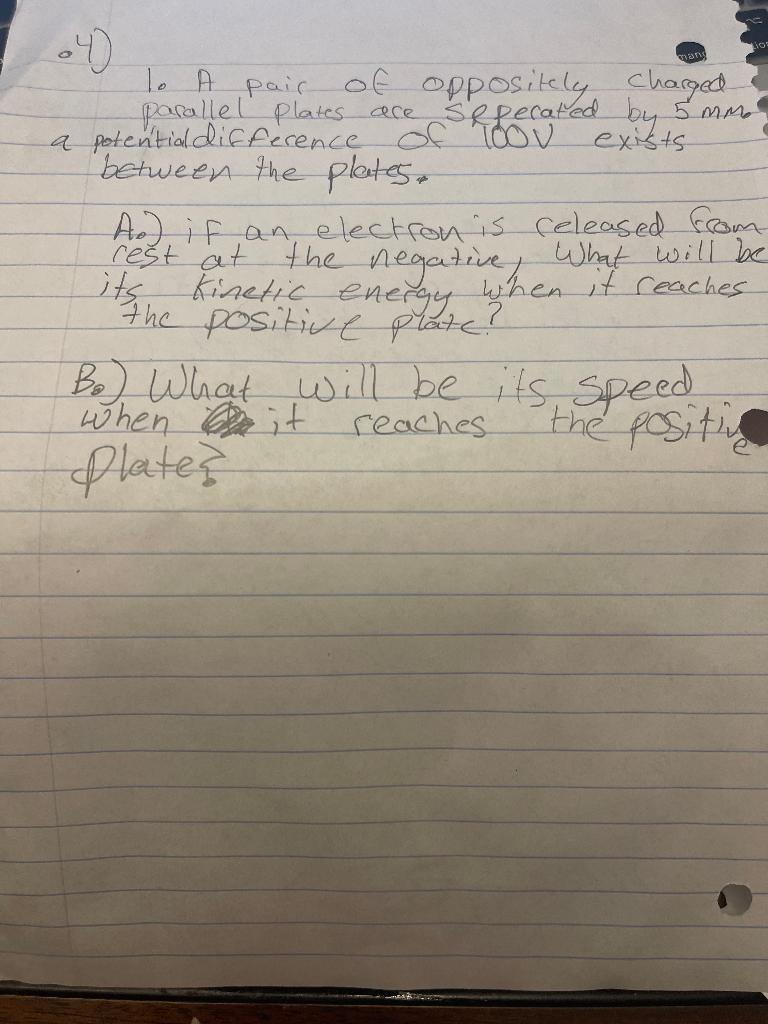 .4)
1. A pair of oppositely charged
parallel plates are seperated by 5 mm.
a potential difference of 100V exists
between the plates.
A.) if an electron is released from
rest at the negative, What will be
its kinetic energy when it reaches
the positive plate?
B.) What will be its speed
when it reaches the positive
plate?